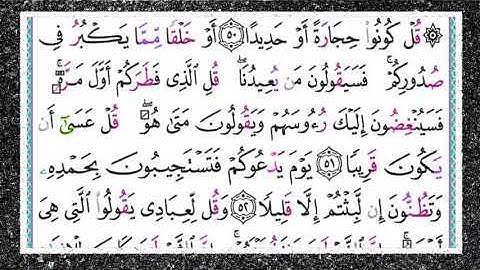 ۞ قُلۡ كُونُواْ حِجَارَةً أَوۡ حَدِيدًا ۝٥٠ أَوۡ خَلۡقٗا مِّمَّا يَكۡبُرُ فِي
صُدُورِكُمۡۚ فَسَيَقُولُونَ مَن يُعِيدُنَاۖ قُلِ ٱلَّذِي فَطَرَكُمۡ أَوَّلَ مَرَّةٖۚ
فَسَيُنۡغِضُونَ إِلَيۡكَ رُءُوسَهُمۡ وَيَقُولُونَ مَتَىٰ هُوَۖ قُلۡ عَسَىٰٓ أَن
يَكُونَ قَرِيبٗا ۝٥١ يَوۡمَ يَدۡعُوكُمۡ فَتَسۡتَجِيبُونَ بِحَمۡدِهِۦ
وَتَظُنُّونَ إِن لَّبِثۡتُمۡ إِلَّا قَلِيلٗا ۝٥٢ وَقُل لِّعِبَادِي يَقُولُواْ ٱلَّتِي هِيَ